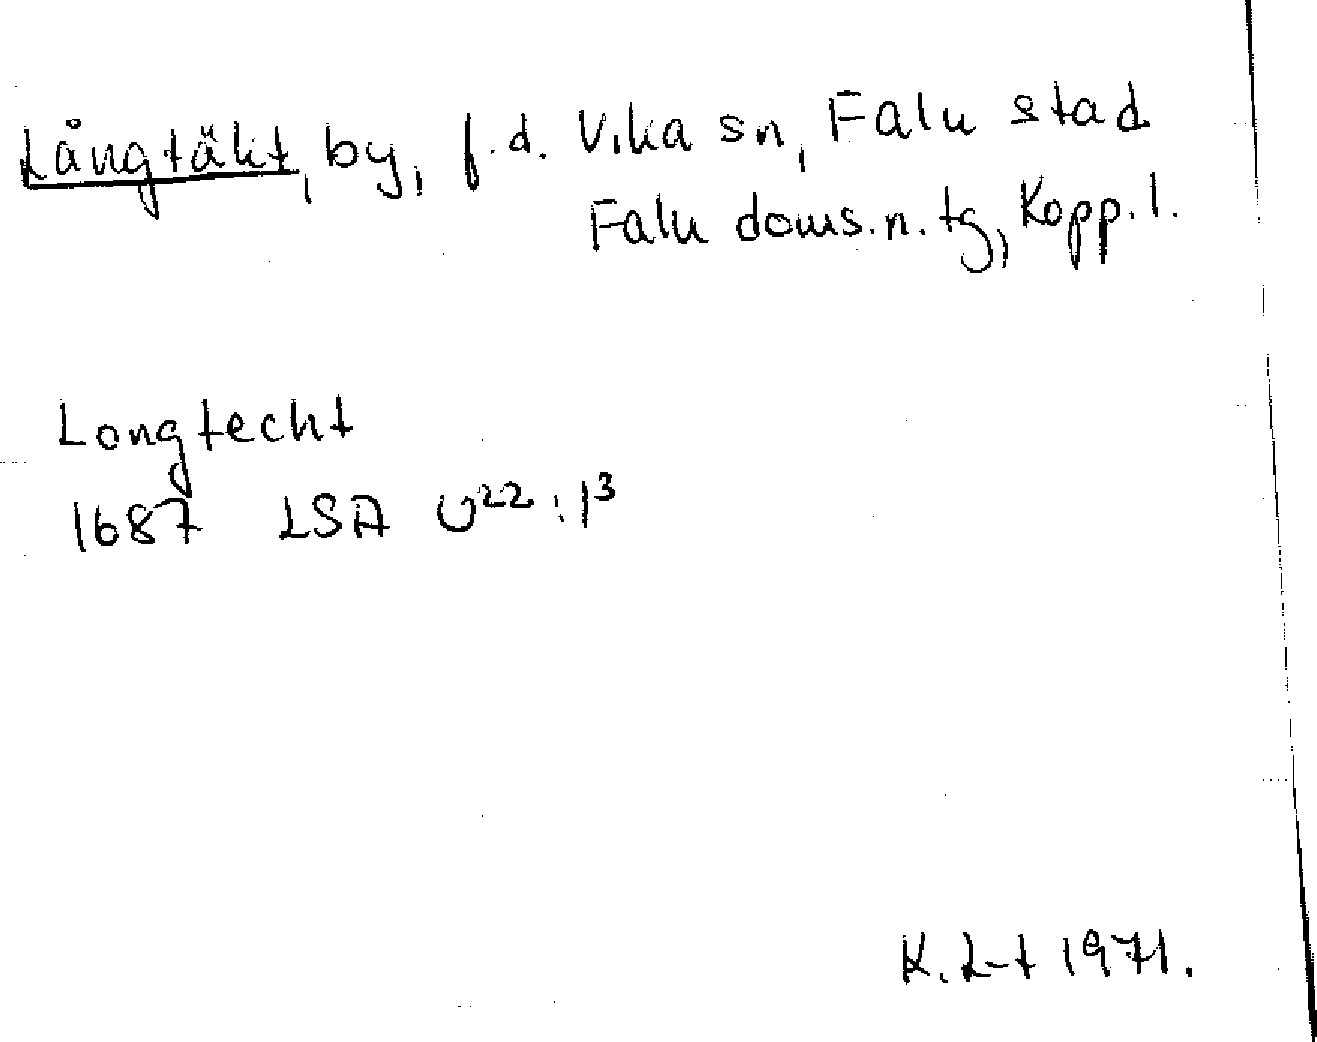 Långtäkt, by, f.d. Vika sn, Falu stad
Falu doms.n. tg, Kopp. l.
Longtecht
1687 LSA U22:13
K. L-t 1971.